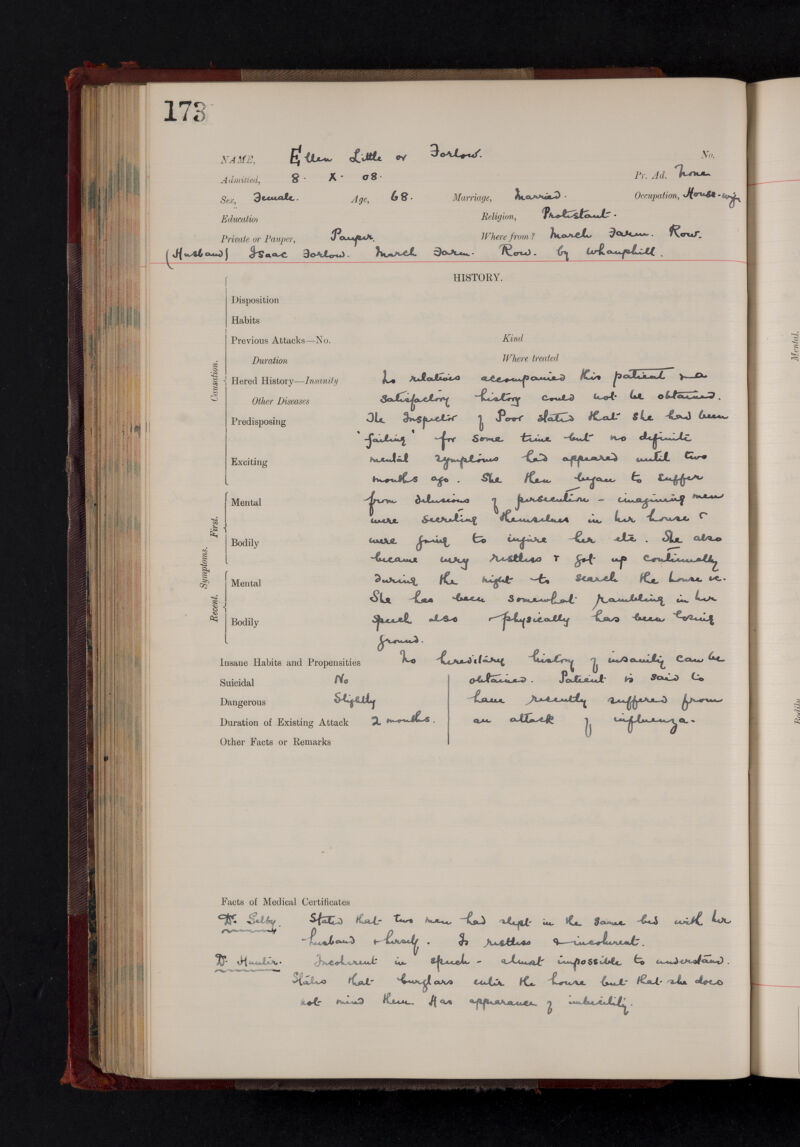 173
NAME, Ellen Little or Forlow. No.
Admitted, 8 · X · 08 · Pr. Ad. None
Sex, Female. Age, 68 · Marriage, Married · Occupation, House-wife
Education Religion, Protestant ·
Private or Pauper, Pauper. Where from? March Farm. Row.
(Husband) Isaac Forlow. March Farm. Row. by Whauphill.
HISTORY.
Disposition
Habits
Previous Attacks—No. Kind
Duration Where treated
Causation.
Hered History—Insanity No relatives accompanied this patient & a
Other Diseases satisfactory history could not be obtained.
Predisposing The Inspector of Poor states that she had been
'failing' for some time but no definite
Exciting mental symptoms had appeared until two
months ago. She then began to suffer
Symptoms.
First.
Mental from delusions of persecution - imagining men
were secreting themselves in her house &
Bodily were going to injure her etc. She also
became very restless & got up continually
Recent.
Mental during the night to search the house &c.
She has been somewhat rambling in her
Bodily speech also & physically has been losing
ground.
Insane Habits and Propensities No hereditary history of insanity can be
Suicidal No obtained. Patient is said to
Dangerous Slightly have recently suffered from
Duration of Existing Attack 2 months. an attack of influenza.
Other Facts or Remarks
Facts of Medical Certificates
Dr. Selby. States that two men had slept in the same bed with her
husband & herself. Is restless & incoherent.
Dr. Hunter. Incoherent in speech - almost impossible to understand.
States that burglars enter the house but that she does
not mind them. Has appearance of imbecility.
Mental.
Bodily